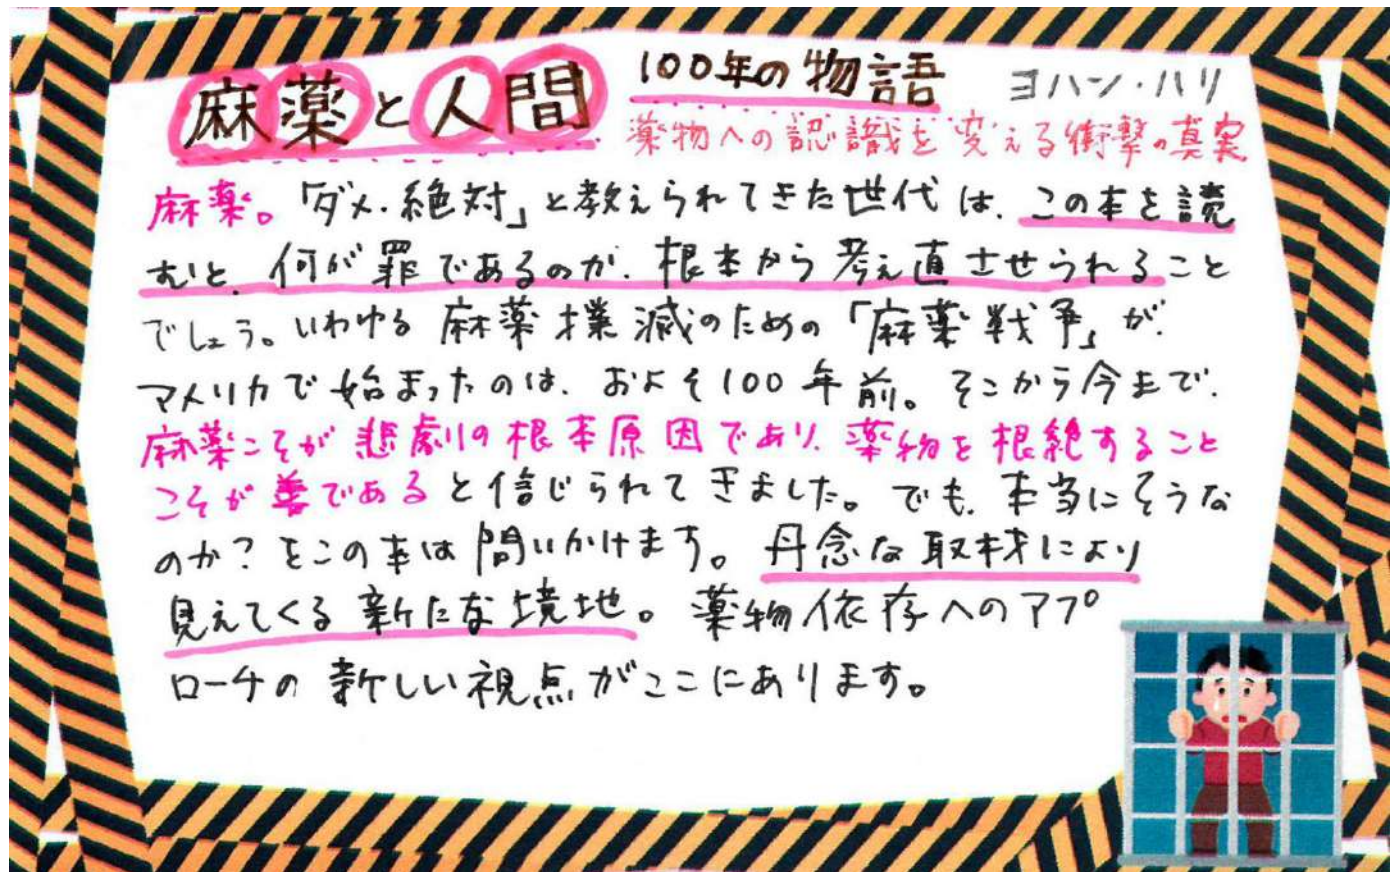 麻薬と人間 100年の物語 ヨハン・ハリ
薬物への認識を変える衝撃の真実
麻薬。「ダメ.絶対」と教えられてきた世代は、この本を読
むと、何が罪であるのか、根本から考え直させられること
でしょう。いわゆる麻薬撲滅のための「麻薬戦争」が、
アメリカで始まったのは、およそ100年前。そこから今まで、
麻薬こそが悲劇の根本原因であり、薬物を根絶すること
こそが善であると信じられてきました。でも、本当にそうな
のか?とこの本は問いかけます。丹念な取材により
見えてくる新たな境地。薬物依存へのアプ
ローチの新しい視点がここにあります。